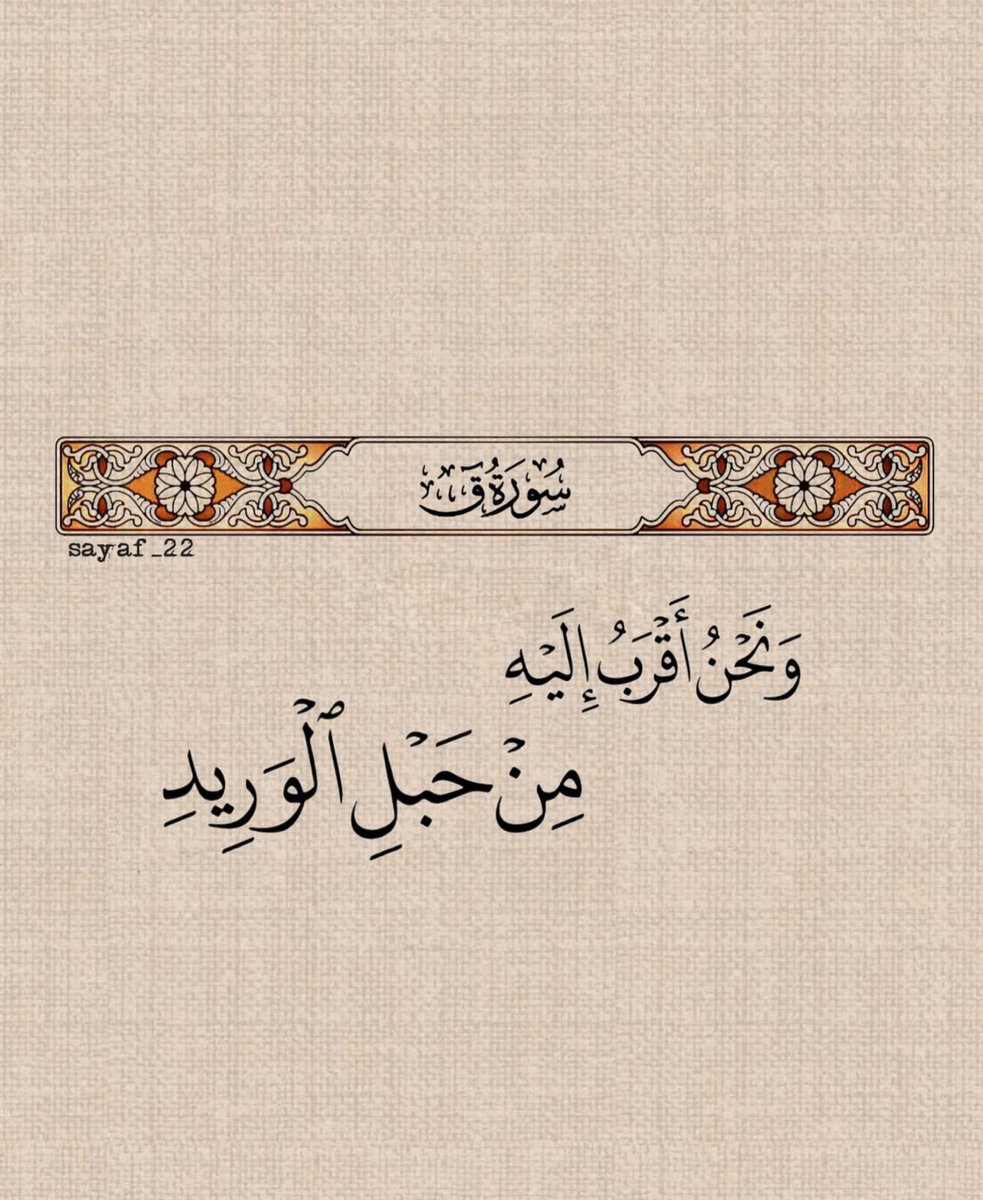 سُورَةُ قٓ
sayaf_22
وَنَحْنُ أَقْرَبُ إِلَيْهِ
مِنْ حَبْلِ ٱلْوَرِيدِ